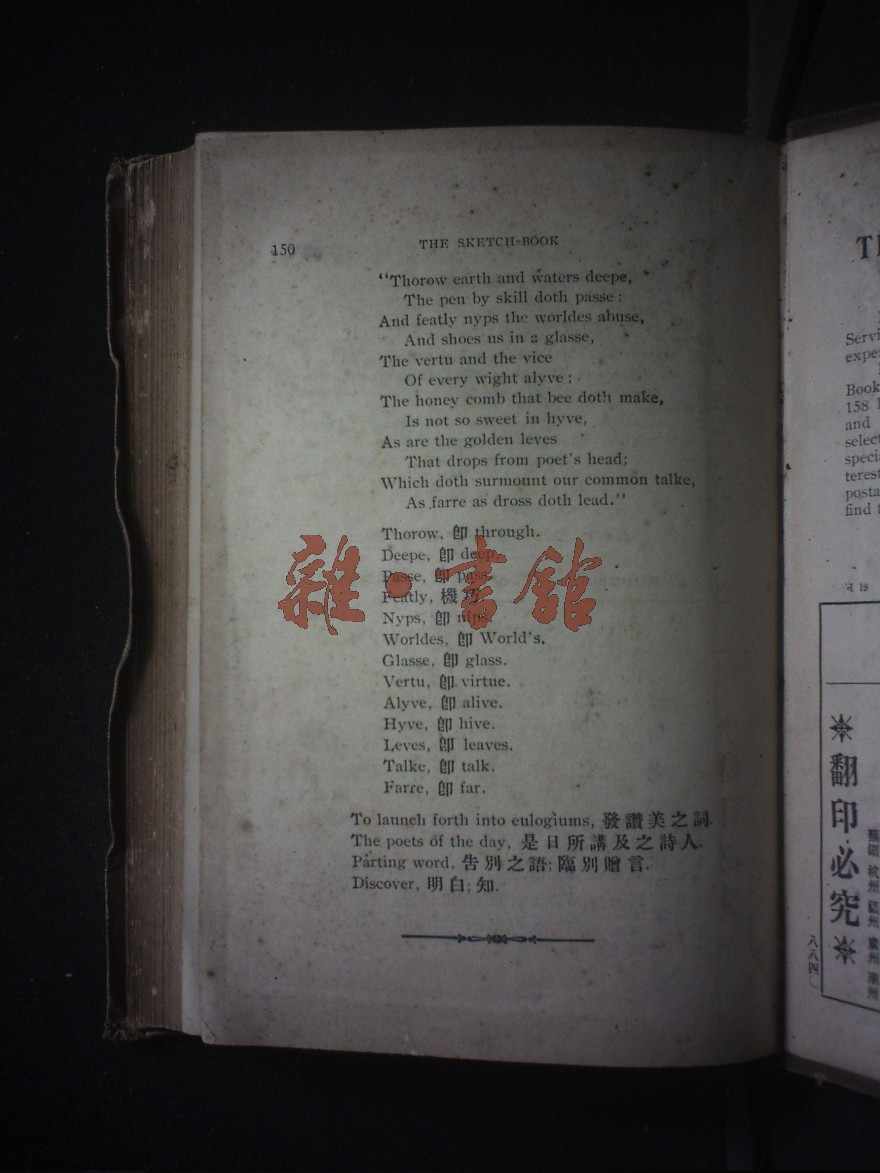 150
THE SKETCH-BOOK
"Thorow earth and waters deepe,
The pen by skill doth passe:
And featly nyps the worldes abuse,
And shoes us in a glasse,
The vertu and the vice
Of every wight alyve;
The honey comb that bee doth make,
Is not so sweet in hyve,
As are the golden leves
That drops from poet's head;
Which doth surmount our common talke,
As farre as dross doth lead."
Thorow, 卽 through.
Deepe, 卽 deep.
Passe, 卽 pass.
Featly, 機
Nyps, 卽 nips.
Worldes, 卽 World's.
Glasse, 卽 glass.
Vertu, 卽 virtue.
Alyve, 卽 alive.
Hyve, 卽 hive.
Leves, 卽 leaves.
Talke, 卽 talk.
Farre, 卽 far.
雜·書館
To launch forth into eulogiums, 發讚美之詞.
The poets of the day, 是日所講及之詩人.
Parting word, 告別之語; 臨別贈言.
Discover, 明白; 知.
Servi
expe
Book
158
and
select
specia
terest
posta
find
19
翻印必究
八八四